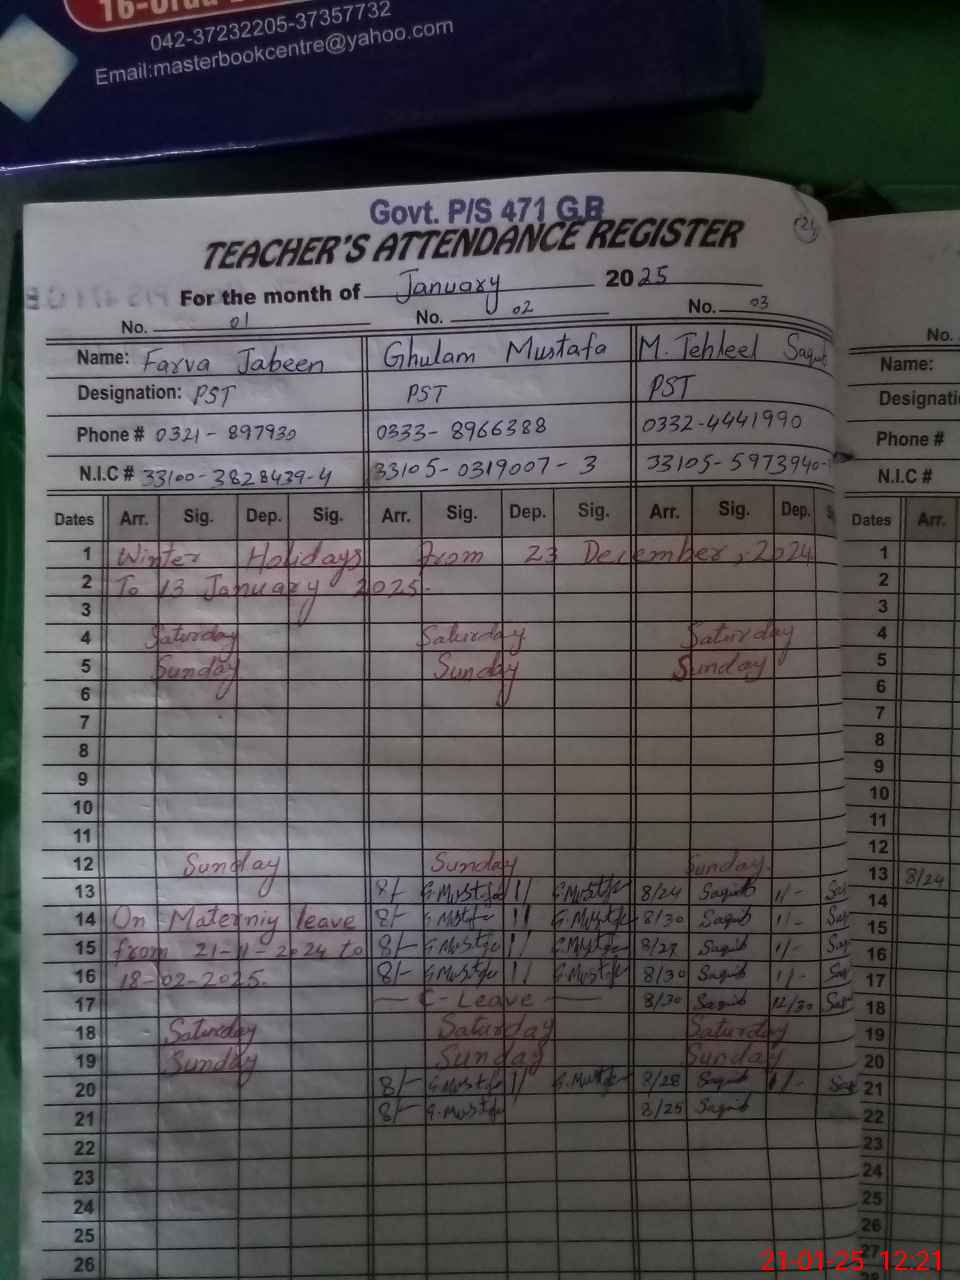 042-37232205-37357732
Email:masterbookcentre@yahoo.com
Govt. P/S 471 G.B
TEACHER'S ATTENDANCE REGISTER
For the month of January 2025
No. 01 No. 02 No. 03 No.
Name: Farva Jabeen Ghulam Mustafa M. Tehleel Saqib Name:
Designation: PST PST PST Designati
Phone # 0321-897930 0333-8966388 0332-4441990 Phone #
N.I.C # 33100-3828439-4 33105-0319007-3 33105-5973940- N.I.C #
Dates Arr. Sig. Dep. Sig. Arr. Sig. Dep. Sig. Arr. Sig. Dep. S Dates Arr.
1 Winter Holidays from 23 December, 2024 1
2 To 13 January 2025. 2
3 3
4 Saturday Saturday Saturday 4
5 Sunday Sunday Sunday 5
6 6
7 7
8 8
9 9
10 10
11 11
12 Sunday Sunday Sunday. 12
13 8/- G.Mustafa 1/ G.Mustafa 8/24 Saqib 1/- Saq 13 8/24
14 On Materniy leave 8/- G.Mustafa 1/ G.Mustafa 8/30 Saqib 1/- Saq 14
15 from 21-11-2024 to 8/- G.Mustafa 1/ G.Mustafa 8/27 Saqib 1/- Saq 15
16 18-02-2025. 8/- G.Mustafa 1/ G.Mustafa 8/30 Saqib 1/- Saq 17
17 C-Leave 8/30 Saqib 12/30 Saq 18
18 Saturday Saturday Saturday 19
19 Sunday Sunday Sunday 20
20 8/- G.Mustafa 1/ G.Mustafa 8/28 Saqib 1/- Saq 21
21 8/- G.Mustafa 8/25 Saqib 22
22 23
23 24
24 25
25 26
26 27
21-01-25 12:21